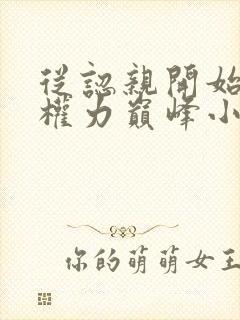 從認親開始
權力巔峰小
你的萌萌女王